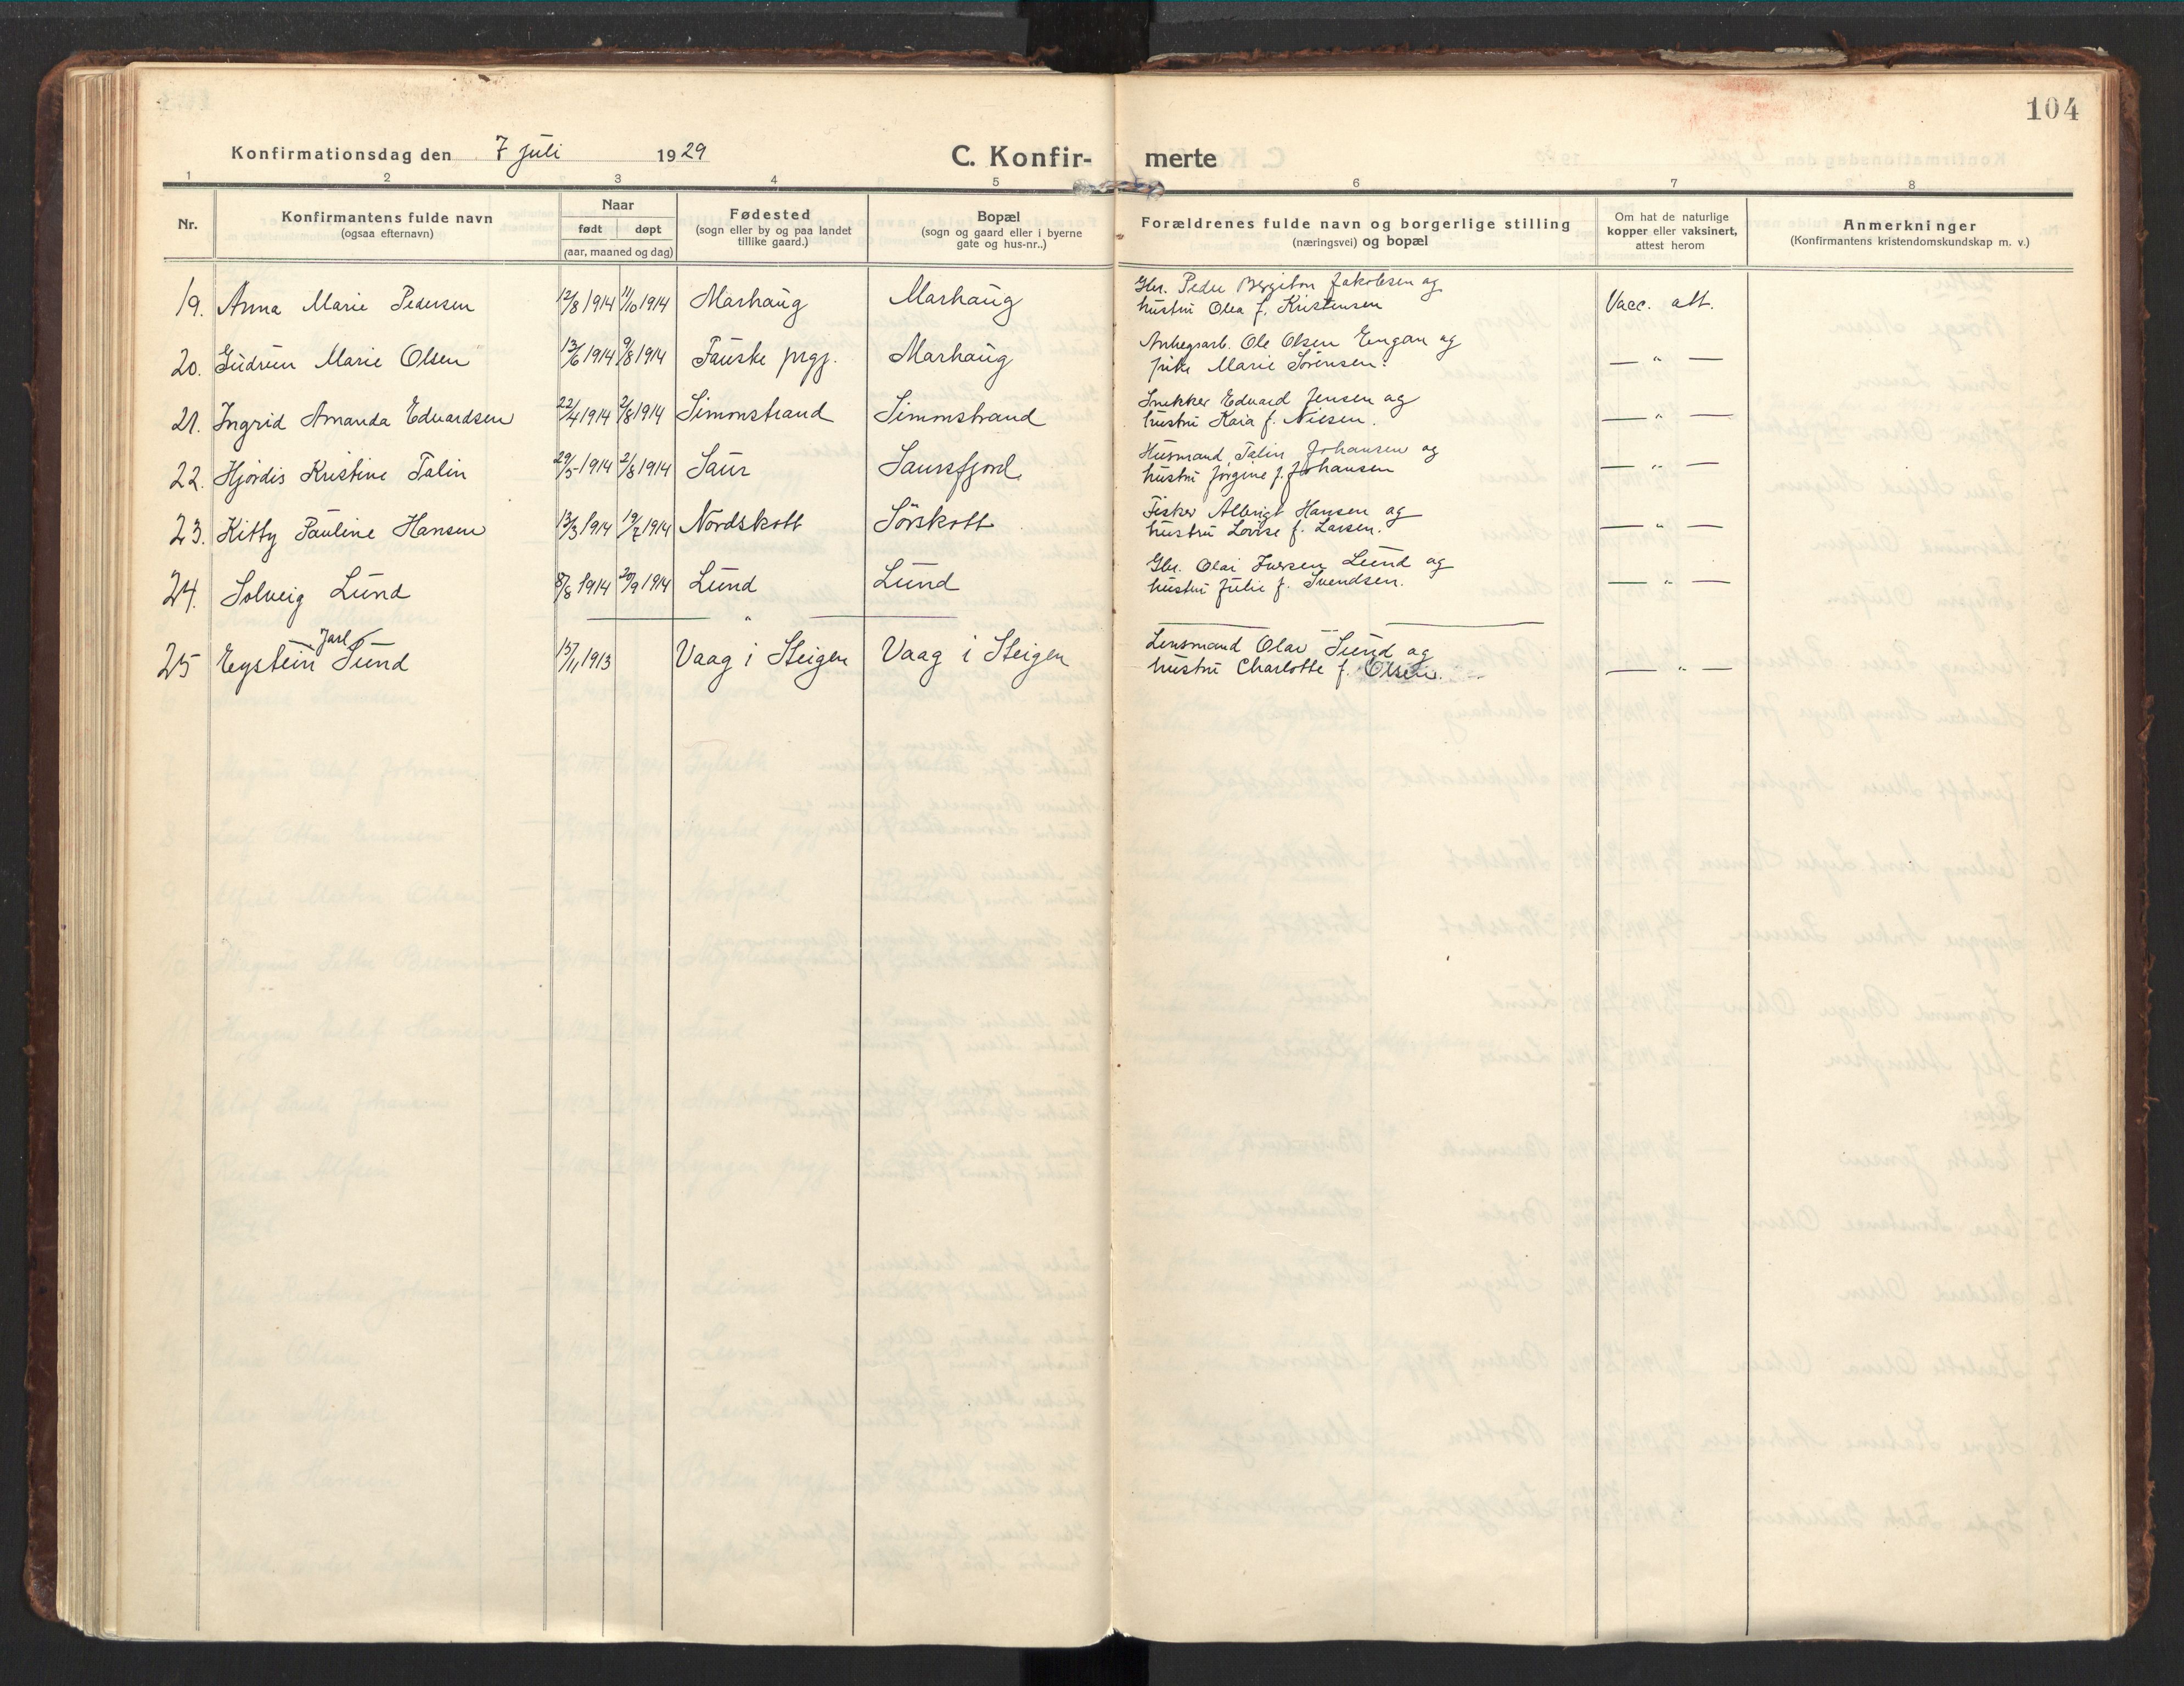 104
Konfirmationsdag den 7 juli 1929 C. Konfir- merte
1 2 3 4 5 6 7 8
Nr.
Konfirmantens fulde navn
(ogsaa efternavn)
Naar
født døpt
(aar, maaned og dag)
Fødested
(sogn eller by og paa landet
tillike gaard.)
Bopæl
(sogn og gaard eller i byerne
gate og hus-nr..)
Forældrenes fulde navn og borgerlige stilling
(næringsvei) og bopæl
Om hat de naturlige
kopper eller vaksinert,
attest herom
Anmerkninger
(Konfirmantens kristendomskundskap m. v.)
19. Anna Marie Pedersen 12/8 1914 11/10 1914 Marhaug Marhaug Gbr. Peder Bergiton Jakobsen og
hustru Olea f. Kristensen Vacc. att.
20. Gudrun Marie Olsen 13/6 1914 9/8 1914 Fauske prgj. Marhaug Anlegsarb. Ole Olsen Engan og
pike Marie Sørensen. — " —
21. Ingrid Amanda Edvardsen 22/4 1914 2/8 1914 Simonstrand Simonstrand Snekker Edvard Jensen og
hustru Kaia f. Nilsen. — " —
22. Hjördis Kristine Talin 29/5 1914 2/8 1914 Saur Saursfjord Husmand Talin Johansen og
hustru Jörgine f. Johansen — " —
23. Kitty Pauline Hansen 13/3 1914 19/7 1914 Nordskott Sörskott Fisker Albrigt Hansen og
hustru Lovise f. Larsen. — " —
24. Solveig Lund 8/8 1914 20/9 1914 Lund Lund Gbr. Olai Iversen Lund og
hustru Julie f. Svendsen. — " —
— " —
Jarl
25 Eystein Sund 15/11 1913 Vaag i Steigen Vaag i Steigen Lensmand Olav Sund og
hustru Charlotte f. Olsen. — " —